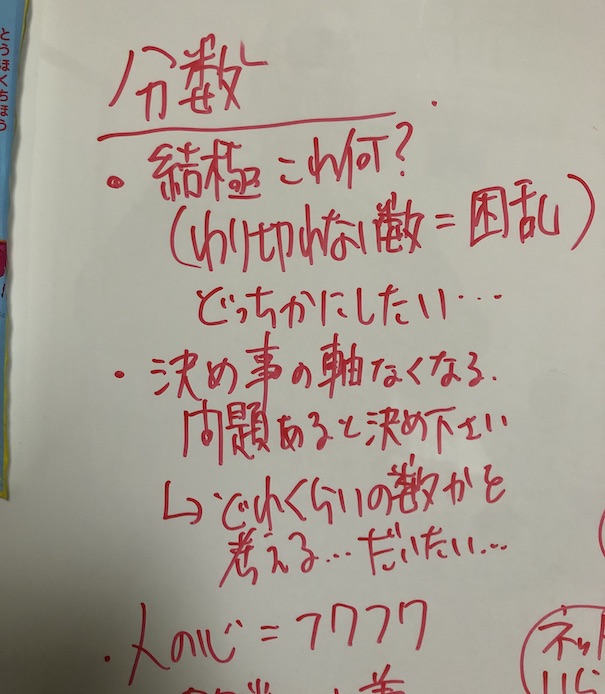 とうほくちほう
分数
・結極これ何?
(わり切れない数=困乱)
どっちかにしたい…
・決め事の軸なくなる.
問題あると決め下さい
↳どれくらいの数かを
考える…だいたい…
・人の心=フワフワ
ネット